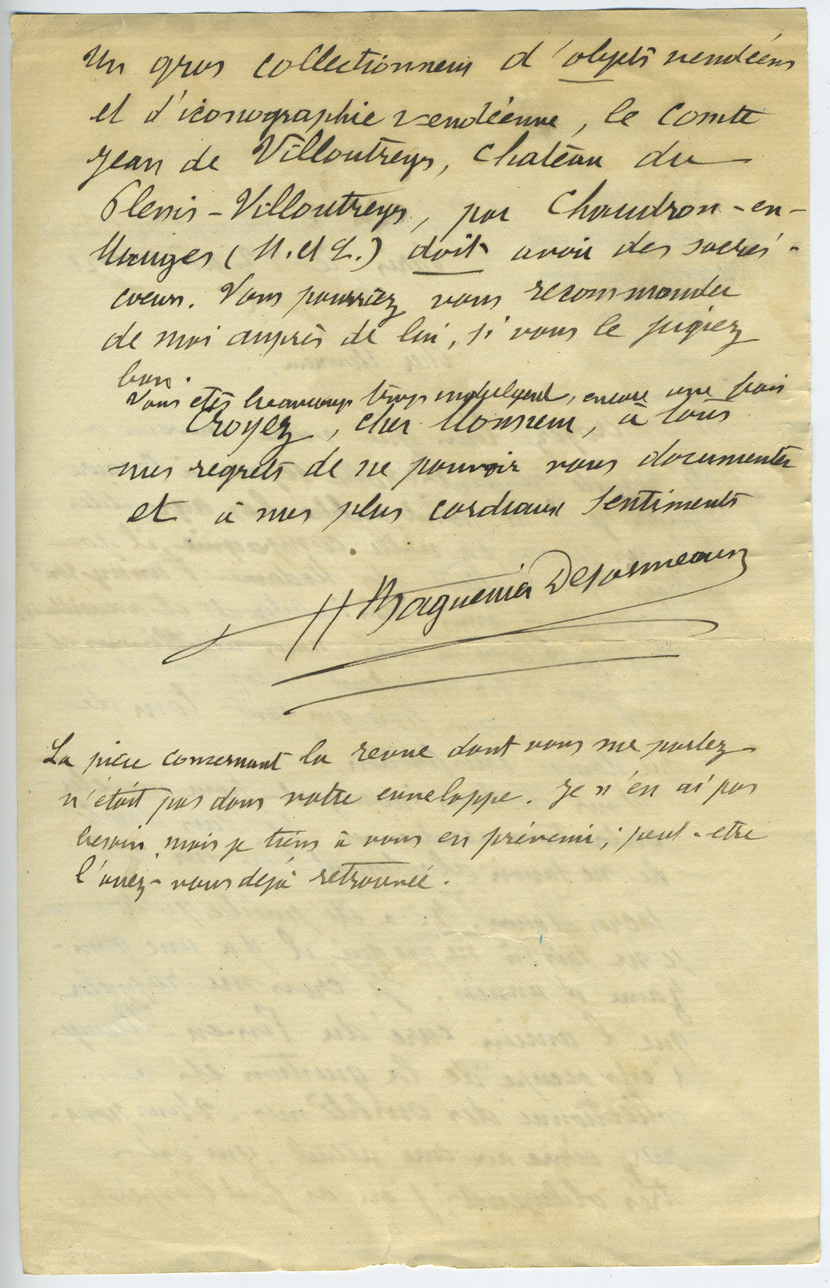 Un gros collectionneur d'objets vendéens
et d'iconographie vendéenne, le comte
Jean de Villoutreys, Château du
Plessis-Villoutreys, par Chaudron-en-
Mauges (M. et L.) doit avoir des sacrés-
coeurs. Vous pourriez vous recommander
de moi auprès de lui, si vous le jugiez
bon.
Vous êtes beaucoup trop indulgent, encore une fois
Croyez, cher Monsieur, à tous
mes regrets de ne pouvoir vous documenter
et à mes plus cordiaux sentiments
H Baguenier Desormeaux
La pièce concernant la revue dont vous me parlez
n'était pas dans votre enveloppe. Je n'en ai pas
besoin, mais je tiens à vous en prévenir; peut-etre
l'avez-vous déjà retrouvée.